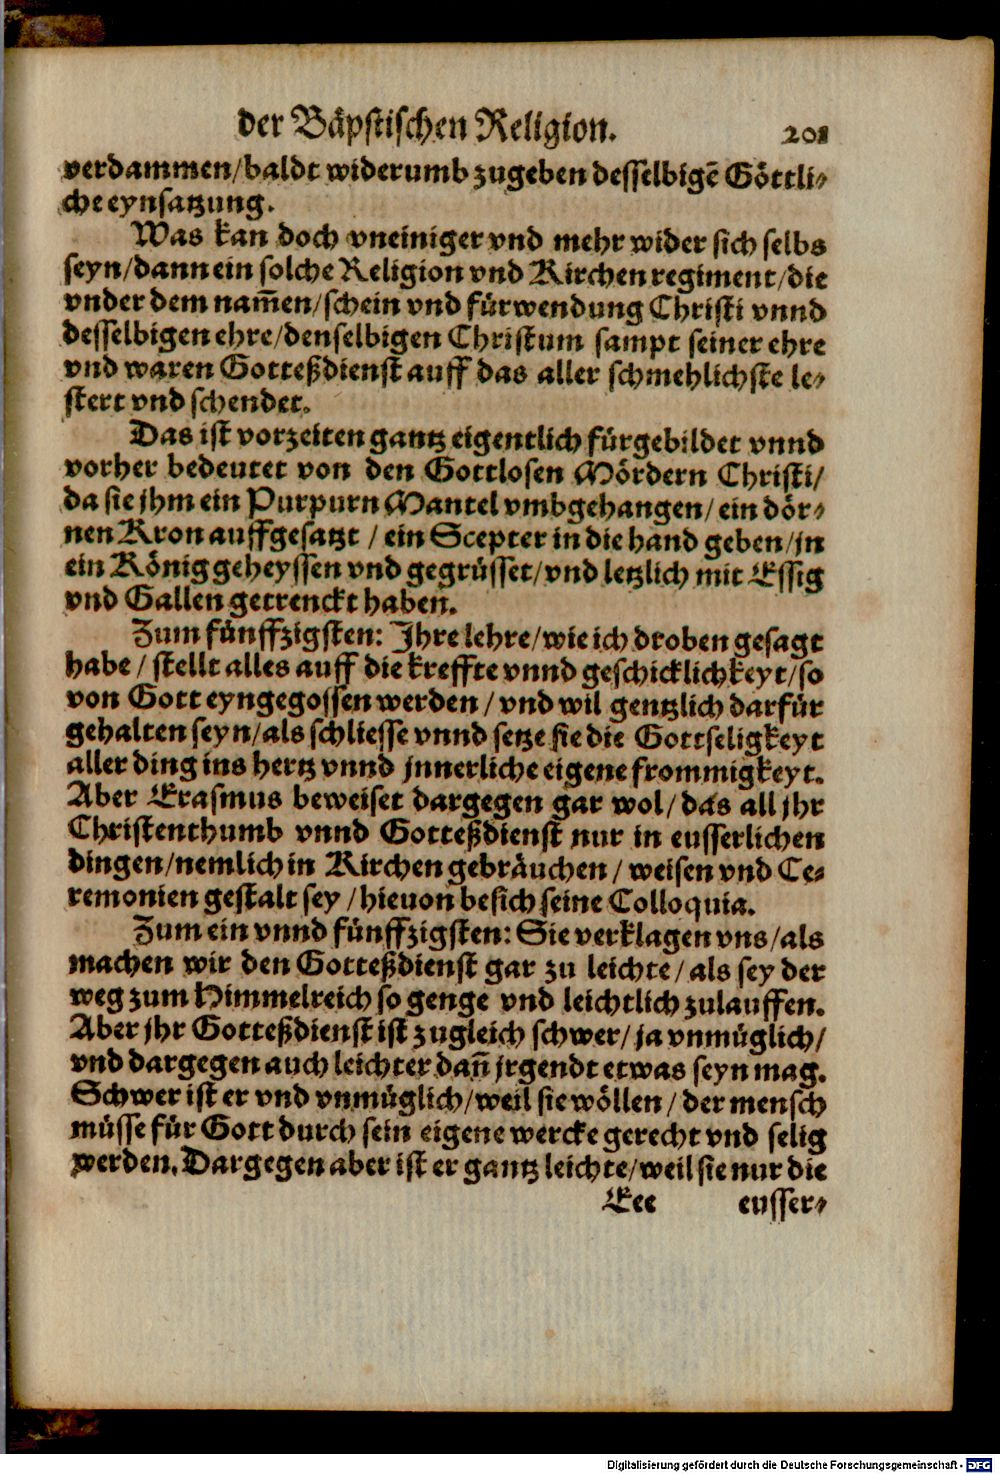 der Bäpstischen Religion. 201
verdammen/baldt widerumb zugeben desselbigē Göttli-
che eynsatzung.
Was kan doch vneiniger vnd mehr wider sich selbs
seyn/dann ein solche Religion vnd Kirchen regiment/die
vnder dem nam̄en/schein vnd fürwendung Christi vnnd
desselbigen ehre/denselbigen Christum sampt seiner ehre
vnd waren Gotteßdienst auff das aller schmehlichste le-
stert vnd schendet.
Das ist vorzeiten gantz eigentlich fürgebildet vnnd
vorher bedeutet von den Gottlosen Mördern Christi/
da sie jhm ein Purpurn Mantel vmbgehangen/ein dör-
nen Kron auffgesatzt / ein Scepter in die hand geben/jn
ein König geheyssen vnd gegrüsset/vnd letzlich mit Essig
vnd Gallen getrenckt haben.
Zum fünffzigsten: Ihre lehre/wie ich droben gesagt
habe / stellt alles auff die kreffte vnnd geschicklichkeyt/so
von Gott eyngegossen werden / vnd wil gentzlich darfür
gehalten seyn/als schliesse vnnd setze sie die Gottseligkeyt
aller ding ins hertz vnnd jnnerliche eigene frommigkeyt.
Aber Erasmus beweiset dargegen gar wol/das all jhr
Christenthumb vnnd Gotteßdienst nur in eusserlichen
dingen/nemlich in Kirchen gebräuchen / weisen vnd Ce-
remonien gestalt sey / hieuon besich seine Colloquia.
Zum ein vnnd fünffzigsten: Sie verklagen vns/als
machen wir den Gotteßdienst gar zu leichte/als sey der
weg zum Himmelreich so genge vnd leichtlich zulauffen.
Aber jhr Gotteßdienst ist zugleich schwer/ja vnmüglich/
vnd dargegen auch leichter dañ jrgendt etwas seyn mag.
Schwer ist er vnd vnmüglich/weil sie wöllen / der mensch
müsse für Gott durch sein eigene wercke gerecht vnd selig
werden. Dargegen aber ist er gantz leichte/weil sie nur die
Eee eusser-
Digitalisierung gefördert durch die Deutsche Forschungsgemeinschaft - DFG